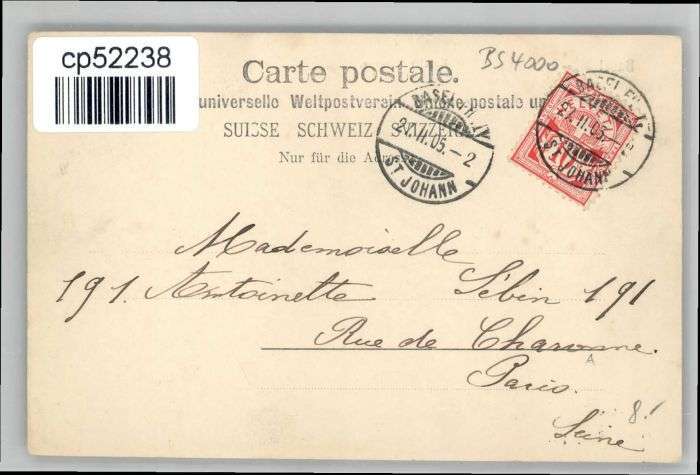 cp52238
BS 4000
Carte postale.
universelle Weltpostverein. postale un
SUISSE SCHWEIZ
Nur für die
BASEL
27.II.05.-2
ST JOHANN
BASEL
27.II.05.
ST JOHANN
10
Mademoiselle
191. Antoinette Lébin 191
Rue de Charonne.
A
Paris.
8!
Seine